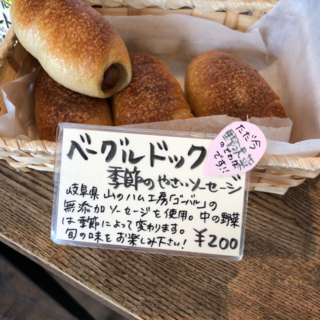 ベーグルドック
季節のやさいソーセージ
岐阜県 山のハム工房「ゴーバル」の
無添加ソーセージを使用。中の野菜
は季節によって変わります。
旬の味をお楽しみ下さい! ¥200
ただ今
です!!